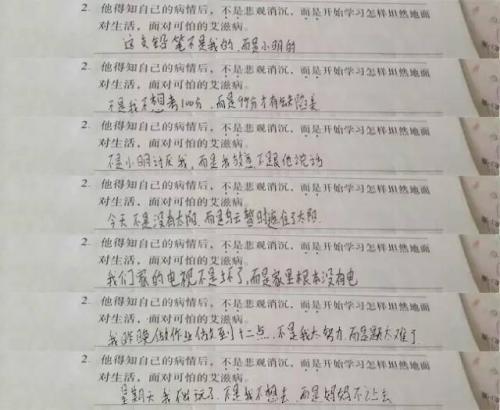 2. 他得知自己的病情后，不是悲观消沉，而是开始学习怎样坦然地面
对生活，面对可怕的艾滋病。
这支铅笔不是我的，而是小明的
2. 他得知自己的病情后，不是悲观消沉，而是开始学习怎样坦然地面
对生活，面对可怕的艾滋病。
不是我不想考100分，而是99分才有缺陷美
2. 他得知自己的病情后，不是悲观消沉，而是开始学习怎样坦然地面
对生活，面对可怕的艾滋病。
不是小明讨厌我，而是我故意不跟他说话
2. 他得知自己的病情后，不是悲观消沉，而是开始学习怎样坦然地面
对生活，面对可怕的艾滋病。
今天不是没有太阳，而是乌云暂时遮住了太阳
2. 他得知自己的病情后，不是悲观消沉，而是开始学习怎样坦然地面
对生活，面对可怕的艾滋病。
我们家的电视不是坏了，而是家里根本没有电
2. 他得知自己的病情后，不是悲观消沉，而是开始学习怎样坦然地面
对生活，面对可怕的艾滋病。
我昨晚做作业做到十二点，不是我太努力，而是题太难了
2. 他得知自己的病情后，不是悲观消沉，而是开始学习怎样坦然地面
对生活，面对可怕的艾滋病。
星期天我做玩了，不是我不想去，而是妈妈不让去